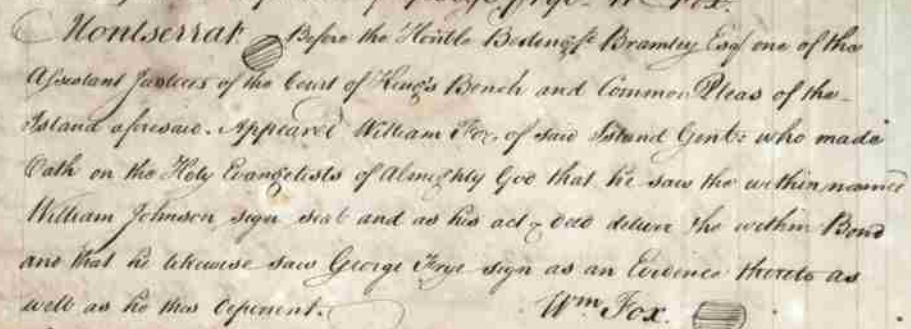 Montserrat. Before the Honble Bedengfd. Bramley Esqr one of the
Assestant Justices of the Court of King's Bench and Common Pleas of the
Island aforesaid. Appeared William Fox, of said Island Gentn: who made
Oath on the Holy Evangelists of Almighty God that he saw the within named
William Johnson sign seal and as his act & deed deliver the within Bond
and that he likewise saw George Frye sign as an Evidence thereto as
well as he this Deponent.
Wm Fox.